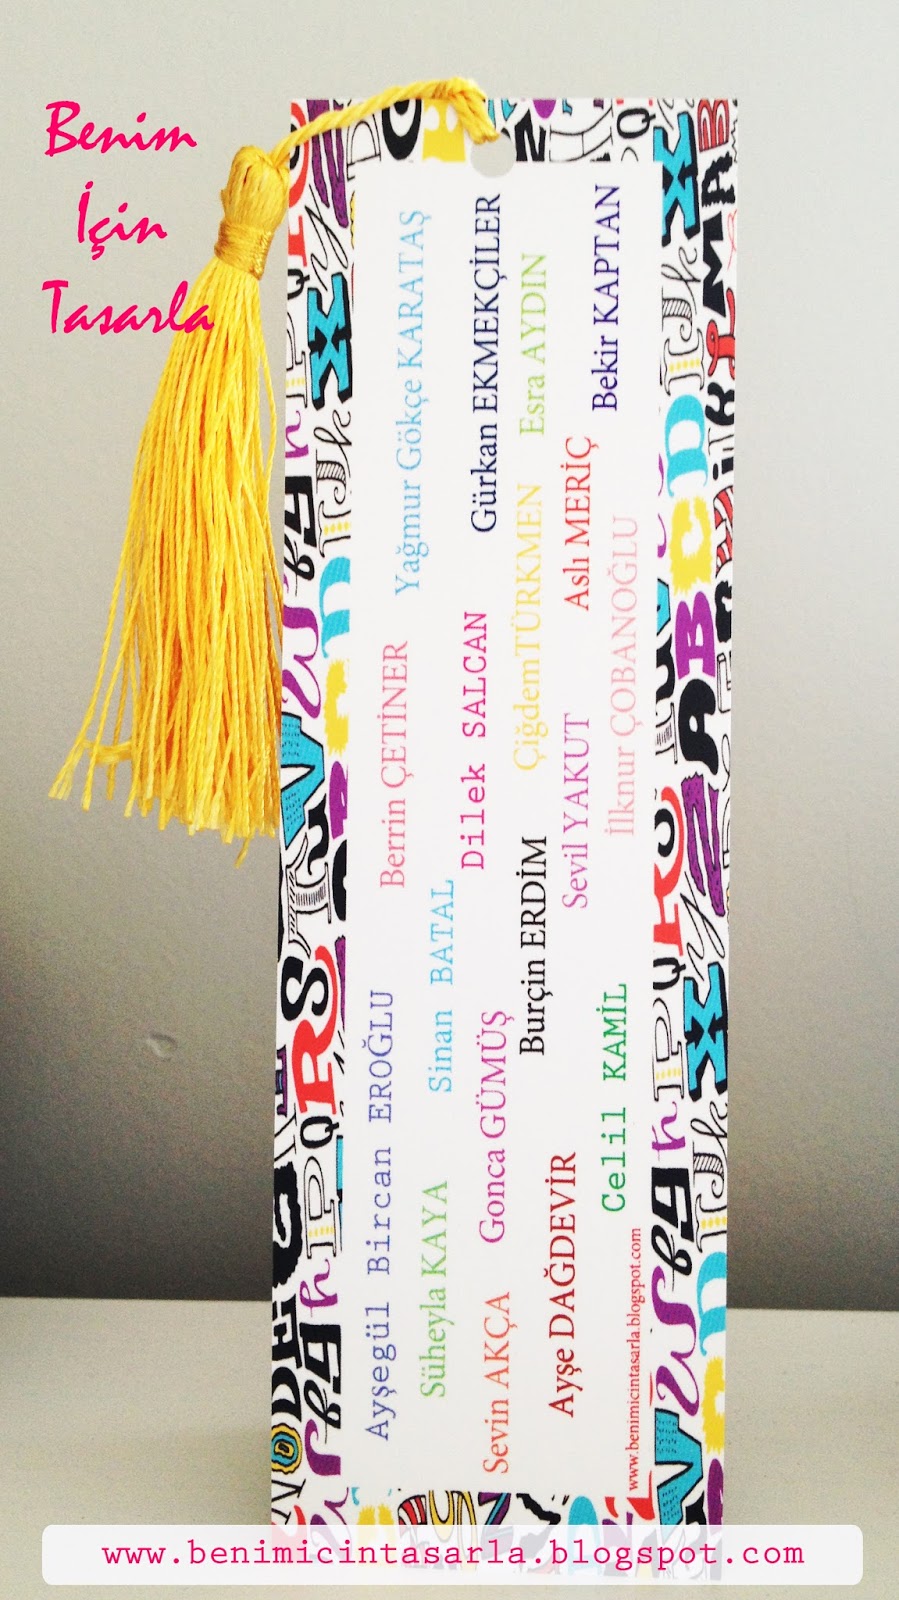 Benim
İçin
Tasarla
Ayşegül Bircan EROĞLU
Berrin ÇETİNER
Yağmur Gökçe KARATAŞ
Süheyla KAYA
Sinan BATAL
Dilek SALCAN
Gürkan EKMEKÇİLER
Sevin AKÇA
Gonca GÜMÜŞ
Burçin ERDİM
ÇiğdemTÜRKMEN
Esra AYDIN
Ayşe DAĞDEVİR
Sevil YAKUT
Aslı MERİÇ
Bekir KAPTAN
Celil KAMİL
İlknur ÇOBANOĞLU
www.benimicintasarla.blogspot.com
www.benimicintasarla.blogspot.com